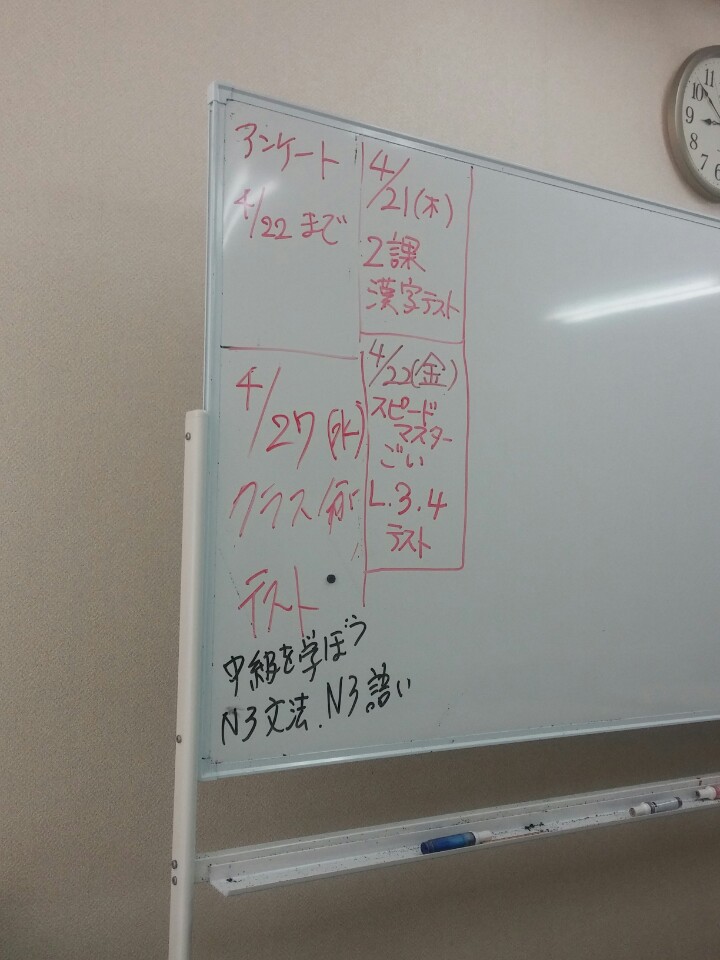 アンケート
4/22まで
4/21(木)
2課
漢字テスト
4/22(金)
スピード
マスター
ごい
L.3.4
テスト
4/27(水)
クラス分け
テスト
中級を学ぼう
N3文法.N3語い
11
10
9
8
7
6